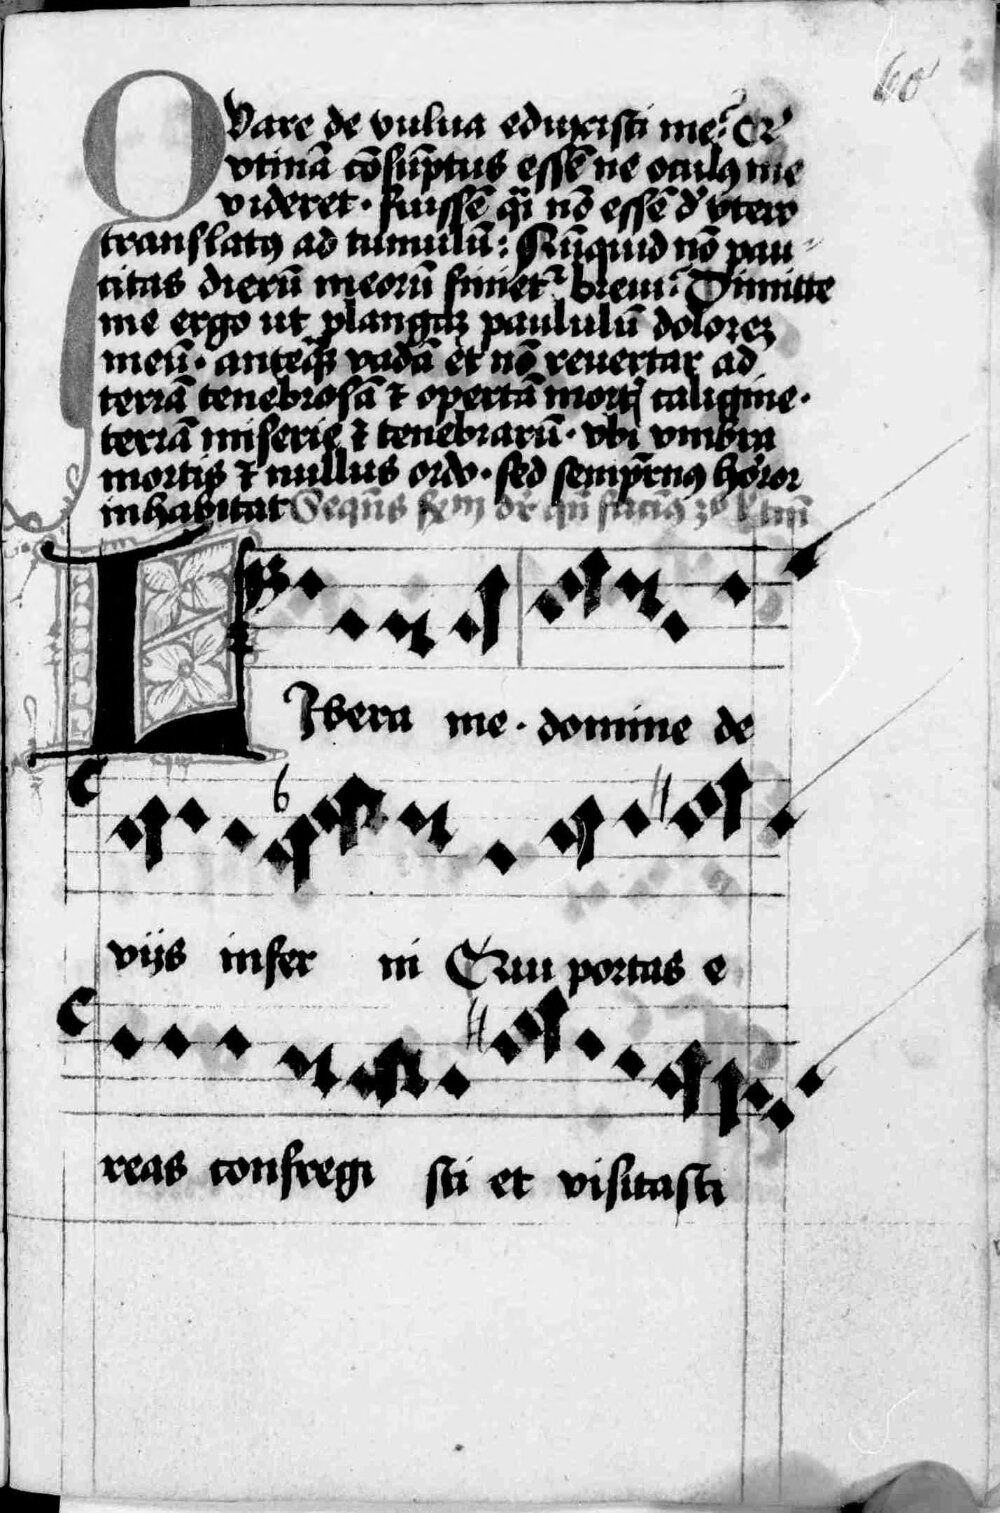 60
Quare de vulua eduxisti me? Q̃
vtinã cõsũptus essẽ ne oculꝰ me
videret · fuissẽ q̃i nõ essẽ d' vtero
translatꝰ ad tumulũ: Nũquid nõ pau-
citas dierũ meorũ finiet᷑ breui? Dimitte
me ergo ut plangaꝫ paululũ doloreꝫ
meũ · anteq̃ꝫ vadã et nõ reuertar ad
terrã tenebrosã ⁊ opertã mortꝭ caligine ·
terrã miserie ⁊ tenebrarũ · vbi vmbra
mortis ⁊ nullus ordo · sed semp̃rnꝰ horror
inhabitat Sequẽs
Libera me · domine de
vijs infer ni Qui portas e
reas confregi sti et visitasti